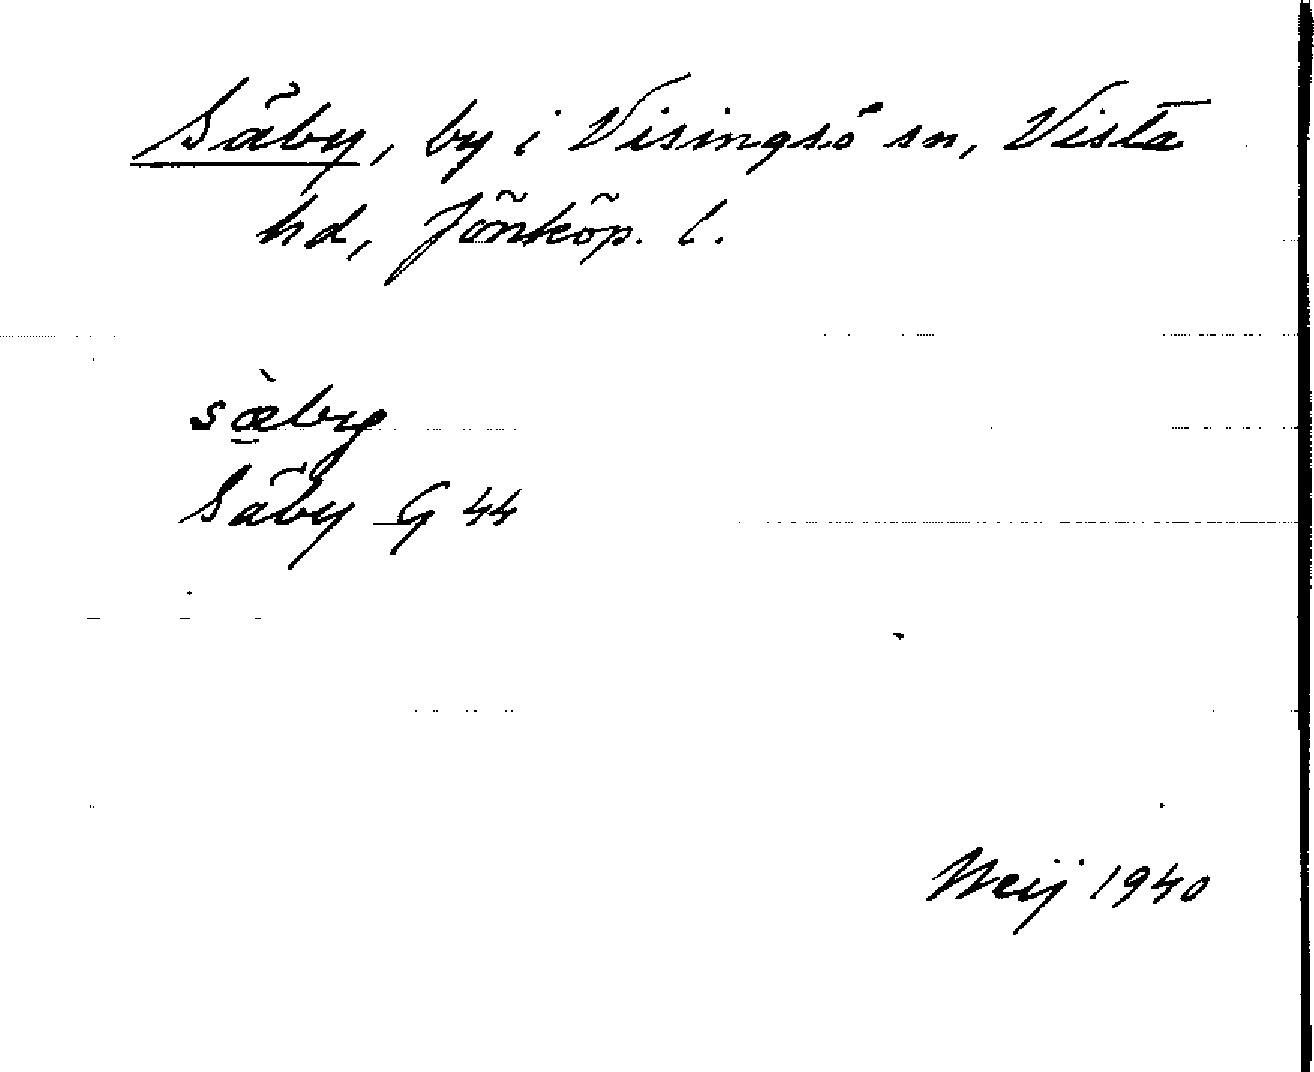 Säby, by i Visingsö sn, Vista
hd, Jönköp. l.
sæ̠̀by
Säby G 44
Weij 1940